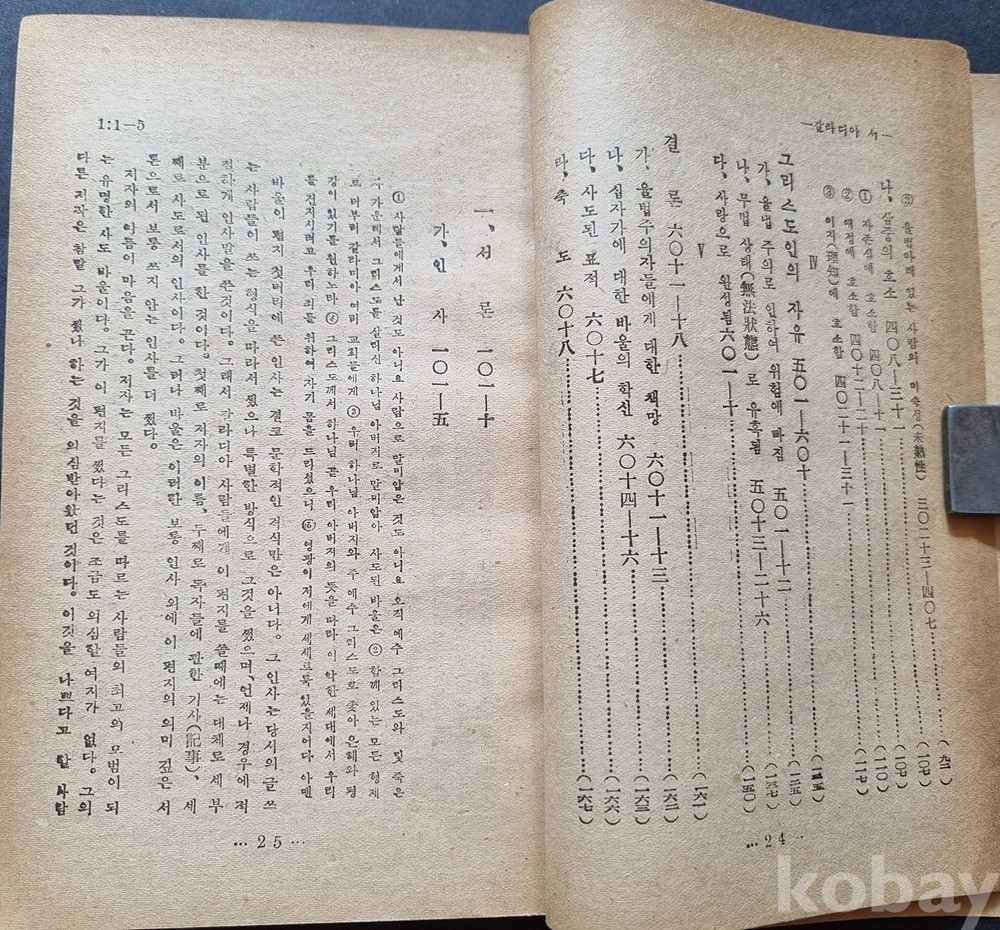 ―갈라디아 서―
③ 율법아래 있는 사람의 미숙성(未熟性) 三〇二十三―四〇七
나、삼중의 호소 四〇八―三十一
① 자존심에 호소함 四〇八―十一
② 애정에 호소함 四〇十二―二十
③ 이지(理知)에 호소함 四〇二十一―三十一
Ⅳ
그리스도인의 자유 五〇一―六〇十
가、율법 주의로 인하여 위험에 빠짐 五〇一―十二
나、무법 상태(無法狀態)로 유혹됨 五〇十三―二十六
다、사랑으로 완성됨 六〇一―十
Ⅴ
결 론 六〇十一―十八
가、율법주의자들에게 대한 책망 六〇十一―十三
나、십자가에 대한 바울의 확신 六〇十四―十六
다、사도된 표적 六〇十七
라、축 도 六〇十八
… 24 …
1:1—5
一、서 론 一〇一―十
가、인 사 一〇一―五
① 사람들에게서 난 것도 아니요 사람으로 말미암은 것도 아니요 오직 예수 그리스도와 및 죽은
자 가운데서 그리스도를 살리신 하나님 아버지로 말미암아 사도된 바울은 ② 함께 있는 모든 형제
로 더부러 갈라디아 여러 교회들에게 ③ 우리 하나님 아버지와 주 예수 그리스도로 좇아 은혜와 평
강이 있기를 원하노라 ④ 그리스도께서 하나님 곧 우리 아버지의 뜻을 따라 이 악한 세대에서 우리
를 건지시려고 우리 죄를 위하여 자기 몸을 드리셨으니 ⑤ 영광이 저에게 세세토록 있을지어다 아멘
바울이 편지 첫머리에 쓴 인사는 결코 문학적인 격식만은 아니다。그 인사는 당시의 글 쓰
는 사람들이 쓰는 형식을 따라서 썼으나 특별한 방식으로 그것을 썼으며、언제나 경우에 적
절하게 인사말을 쓴것이다。그래서 갈라디아 사람들에게 이 편지를 쓸때에는 대체로 세 부
분으로 된 인사를 한 것이다。첫째로 저자의 이름、두째로 독자들에 관한 기사(記事)、세
째로 사도로서의 인사이다。그러나 바울은 이러한 보통 인사 외에 이 편지의 의미 깊은 서
론으로서 보통 쓰지 안는 인사를 더 썼다。
저자의 이름이 마음을 끈다。저자는 모든 그리스도를 따르는 사람들의 최고의 모범이 되
는 유명한 사도 바울이다。그가 이 편지를 썼다는 것은 조금도 의심할 여지가 없다。그의
다른 저작은 참말 그가 썼나 하는 것을 의심받아왔던 것이다。이것을 나쁘다고 할 사람
… 25 …
kobay